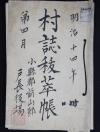 明治十四年
村誌稜萃帳
第四月
小縣郡前山邨
戸長役場